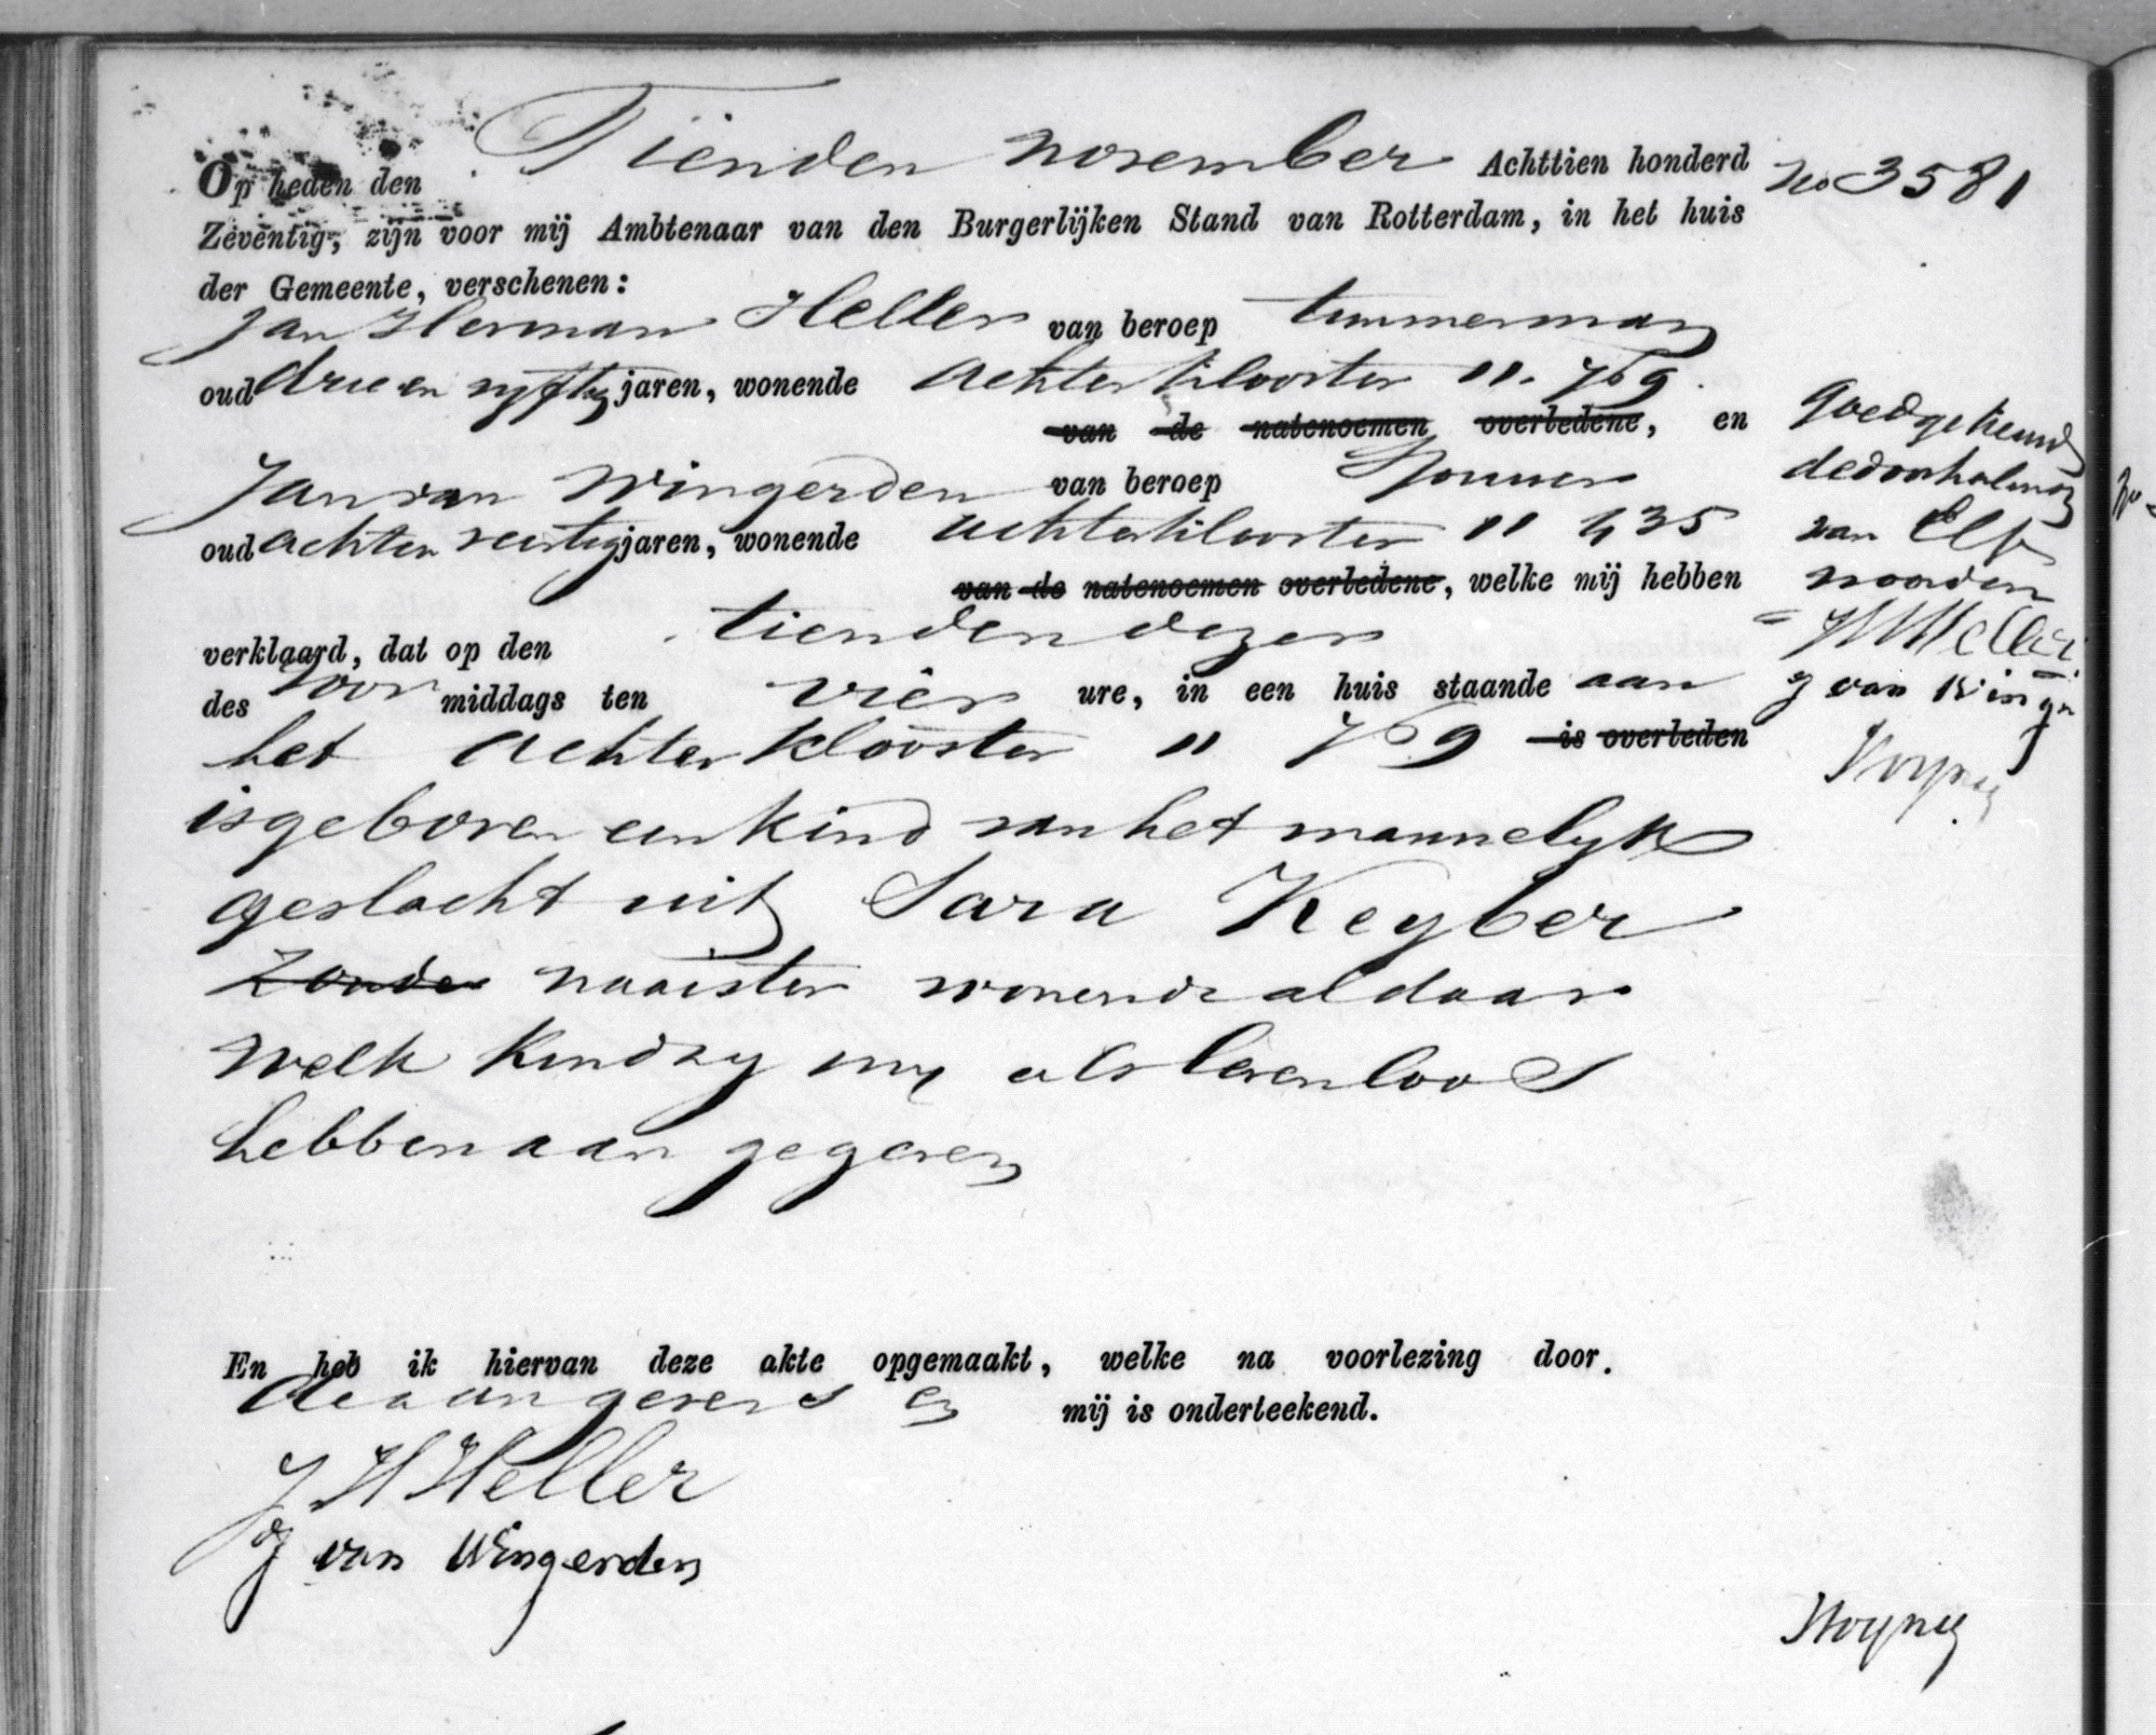 Op heden den Tienden november Achttien honderd No 3581
Zeventig, zijn voor mij Ambtenaar van den Burgerlijken Stand van Rotterdam, in het huis
der Gemeente, verschenen:
Jan Herman Heller van beroep timmerman
oud drie en vyftig jaren, wonende Achterklooster 11. 769.
van de natenoemen overledene, en
Jan van Wingerden van beroep Sjouwer
oud achten zestig jaren, wonende achterklooster 11 435
van de natenoemen overledene, welke mij hebben
verklaard, dat op den tienden dezer
des voor middags ten vier ure, in een huis staande aan
het Achterklooster 11 769 is overleden
is geboren een kind van het mannelyk
geslacht uit Sara Keyber
Zonder naaister wonende aldaar
welk kind zy my als levenloos
hebben aangegeven
Goedgekeurd
de doorhaling
van Elf
woorden
JHHeller
J van Wingn
En heb ik hiervan deze akte opgemaakt, welke na voorlezing door.
de aangevers en mij is onderteekend.
J H Heller
J van Wingerden